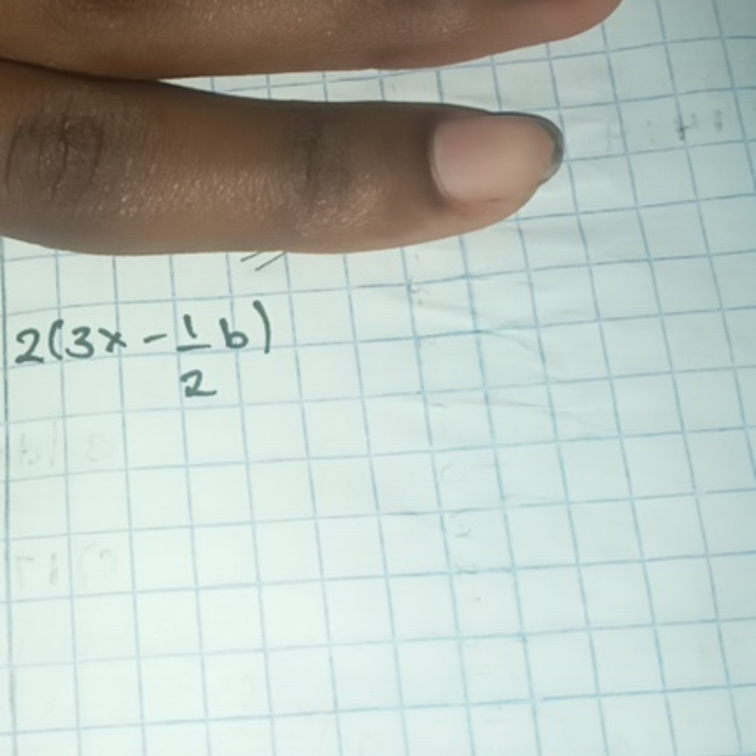 2(3x - 1/2 b)